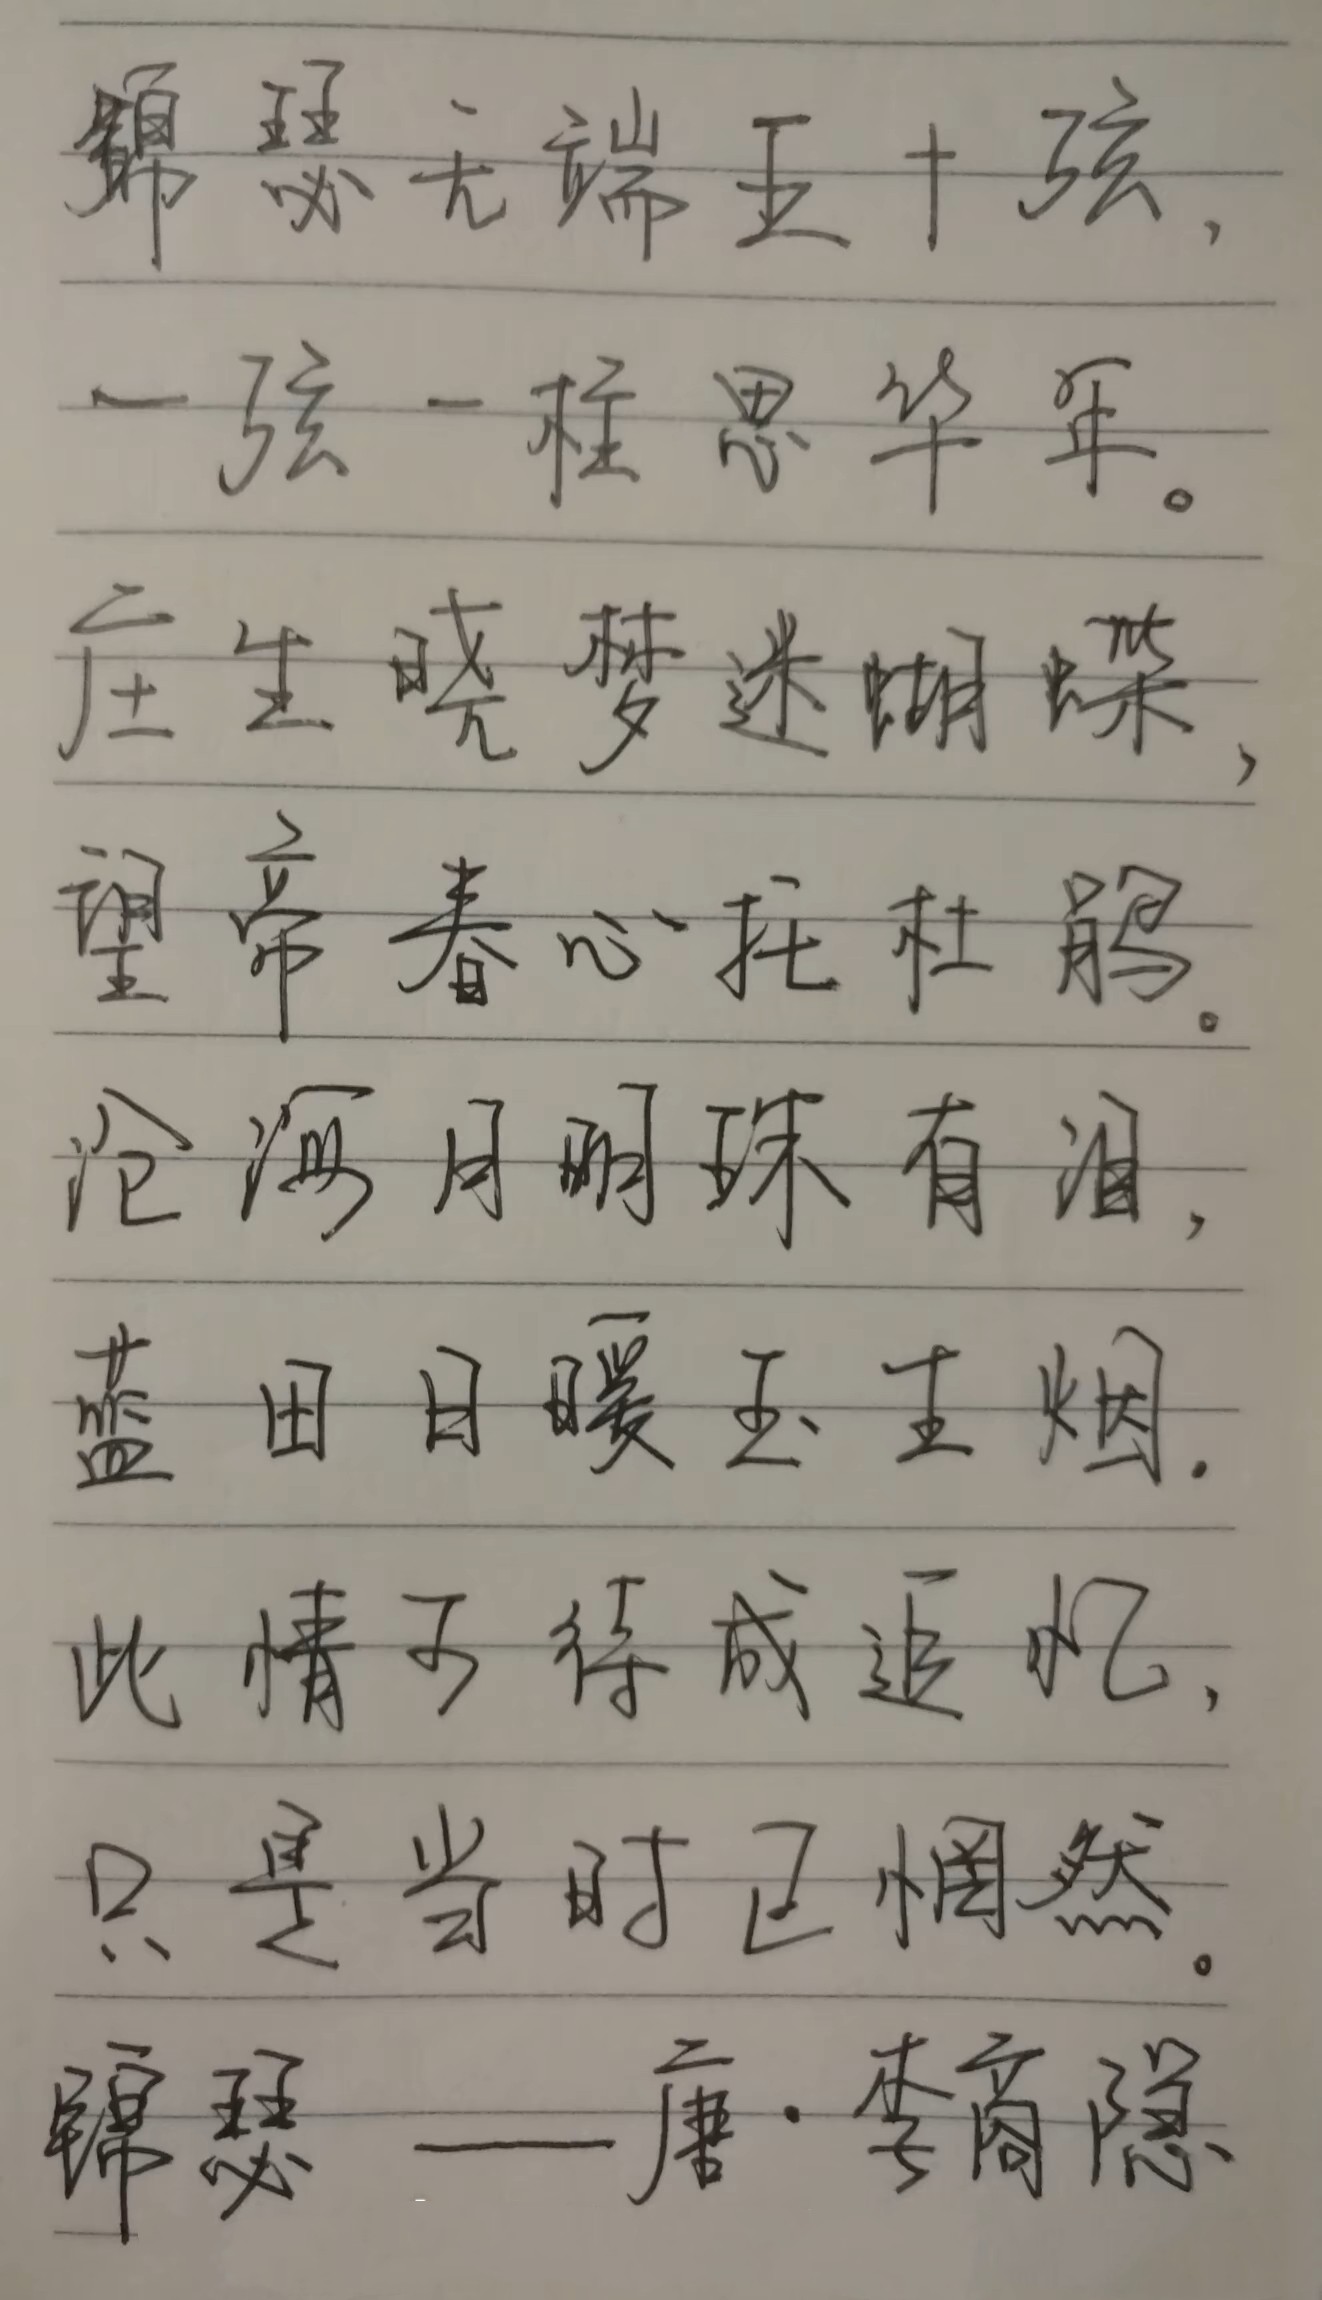 锦瑟无端五十弦，
一弦一柱思华年。
庄生晓梦迷蝴蝶，
望帝春心托杜鹃。
沧海月明珠有泪，
蓝田日暖玉生烟.
此情可待成追忆，
只是当时已惘然。
锦瑟——唐·李商隐